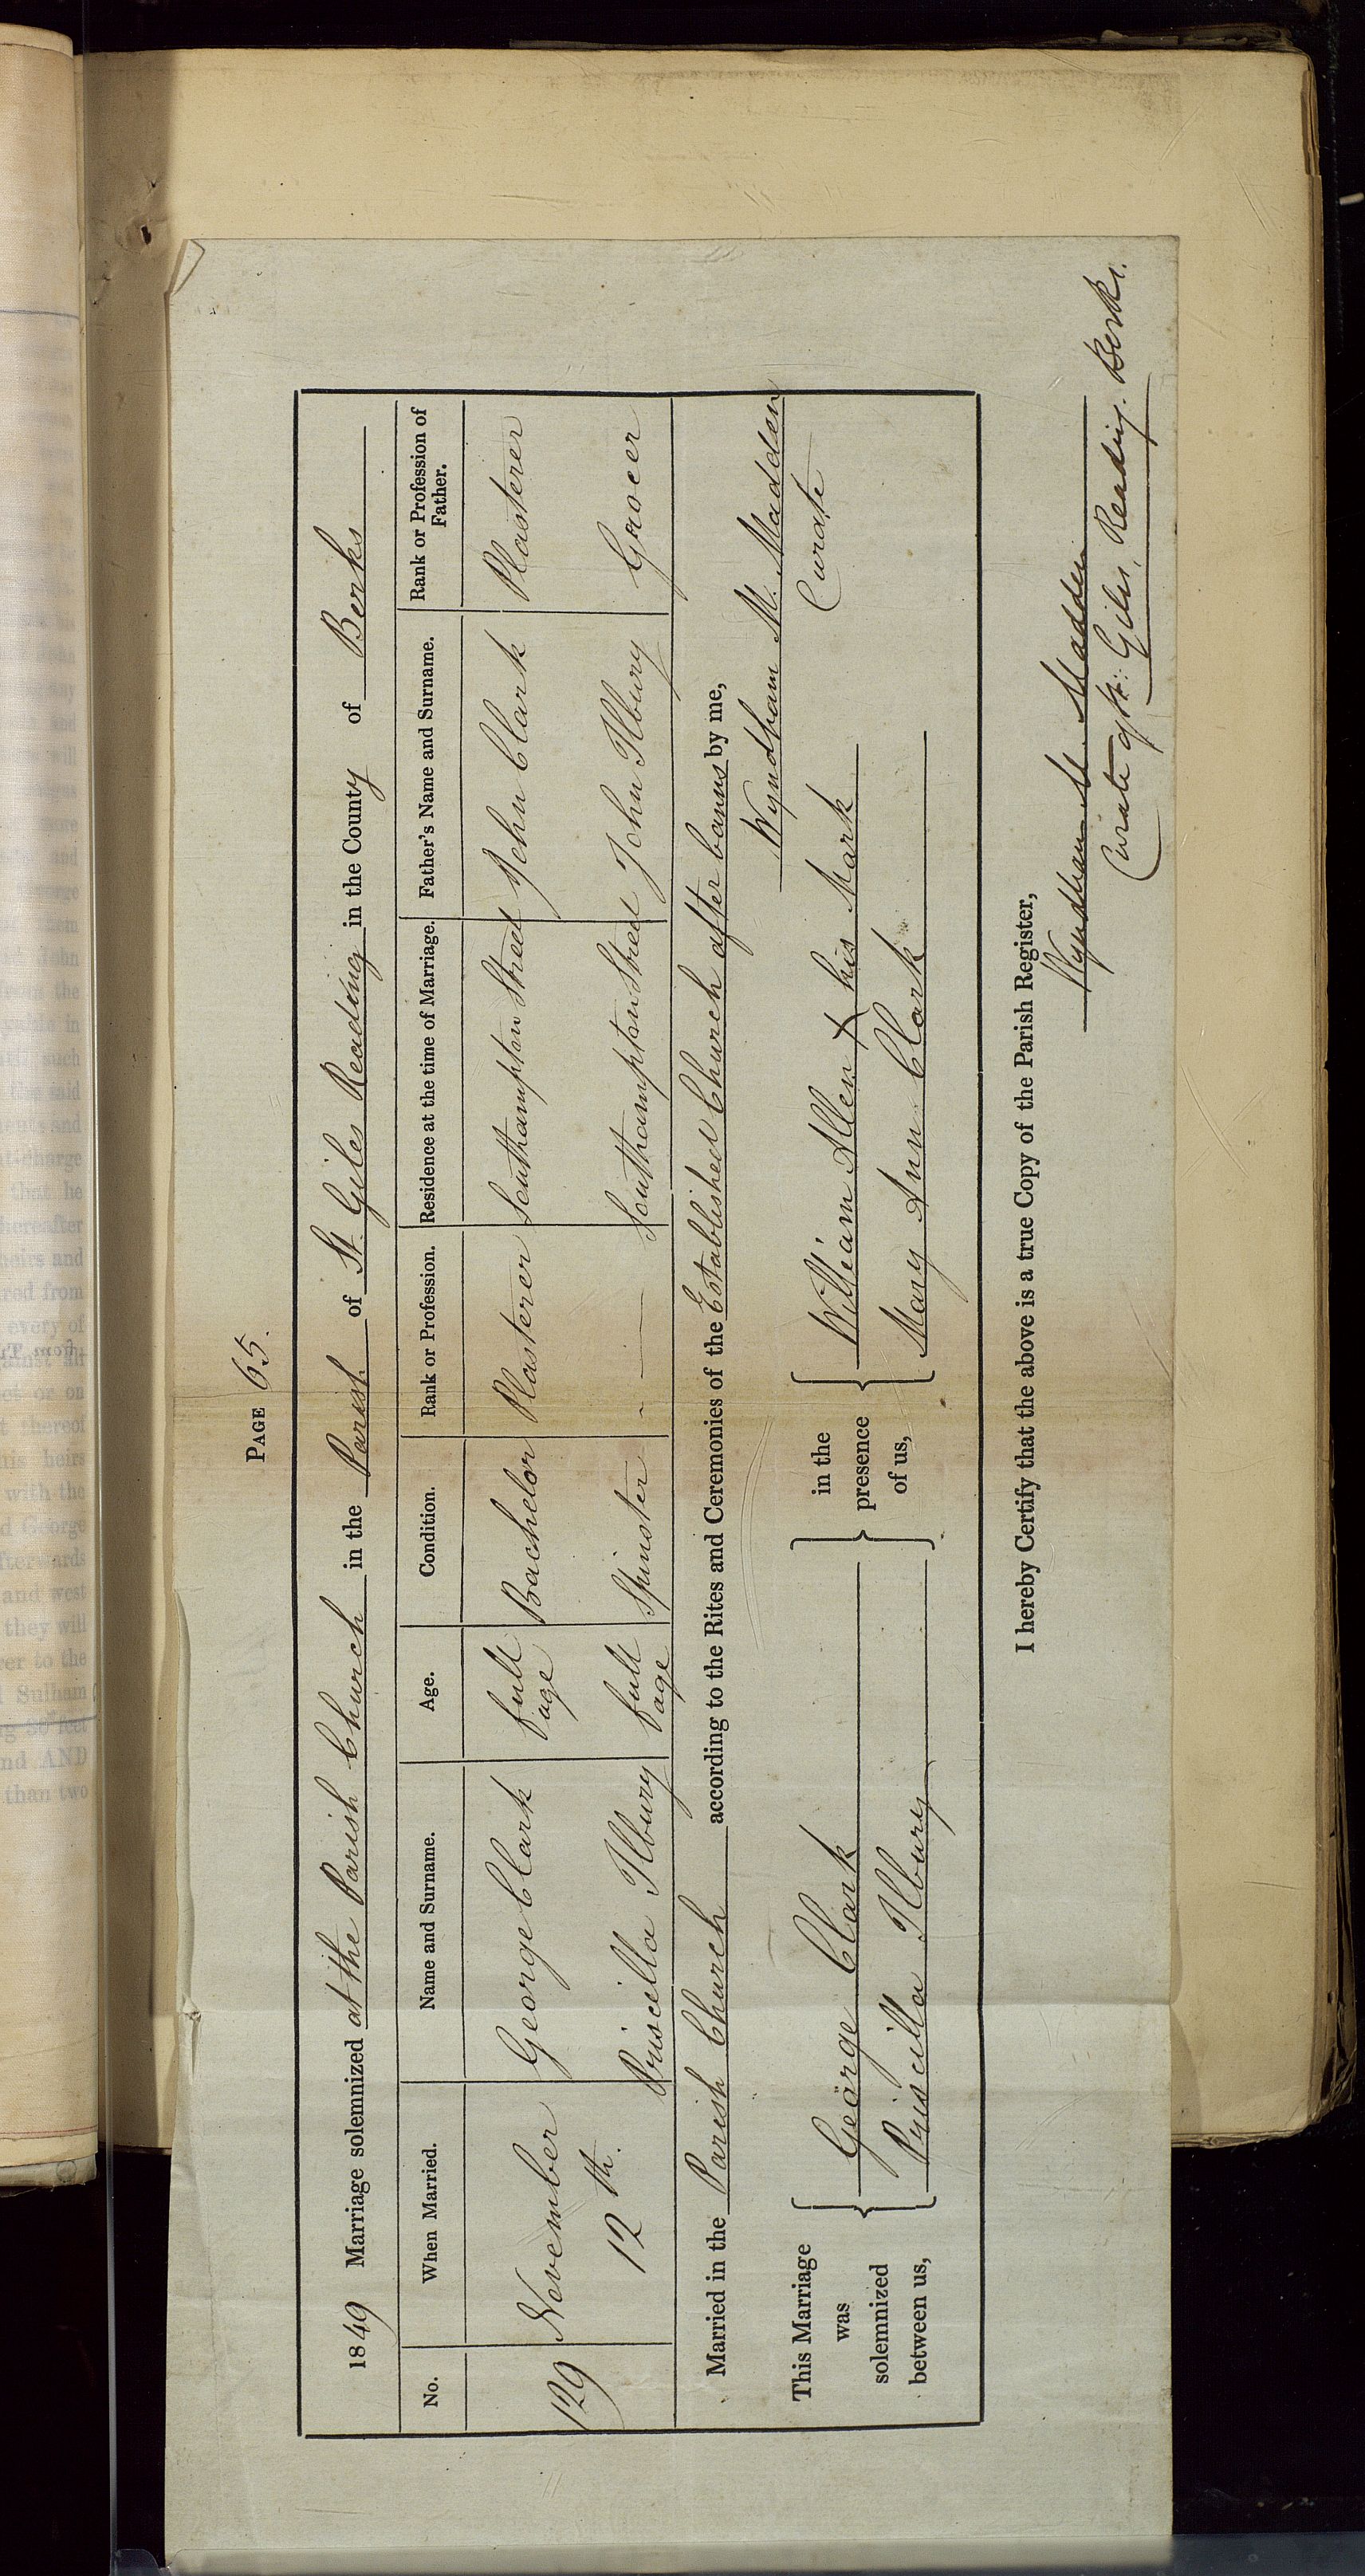 PAGE 65.
1849 Marriage solemnized at the Parish Church in the Parish of St. Giles Reading in the County of Berks
No. When Married. Name and Surname. Age. Condition. Rank or Profession. Residence at the time of Marriage. Father's Name and Surname. Rank or Profession of Father.
129 November 12th. George Clark full age Bachelor Plasterer Southampton Street John Clark Plasterer
Priscilla Ilbury full age Spinster - — Southampton Street John Ilbury Grocer
Married in the Parish Church according to the Rites and Ceremonies of the Established Church after banns by me,
Wyndham M. Madden
Curate
This Marriage was solemnized between us, George Clark
Priscilla Ilbury
in the presence of us, William Allen X his Mark
Mary Ann Clark
I hereby Certify that the above is a true Copy of the Parish Register,
Wyndham M. Madden
Curate of St: Giles, Reading. Berks.